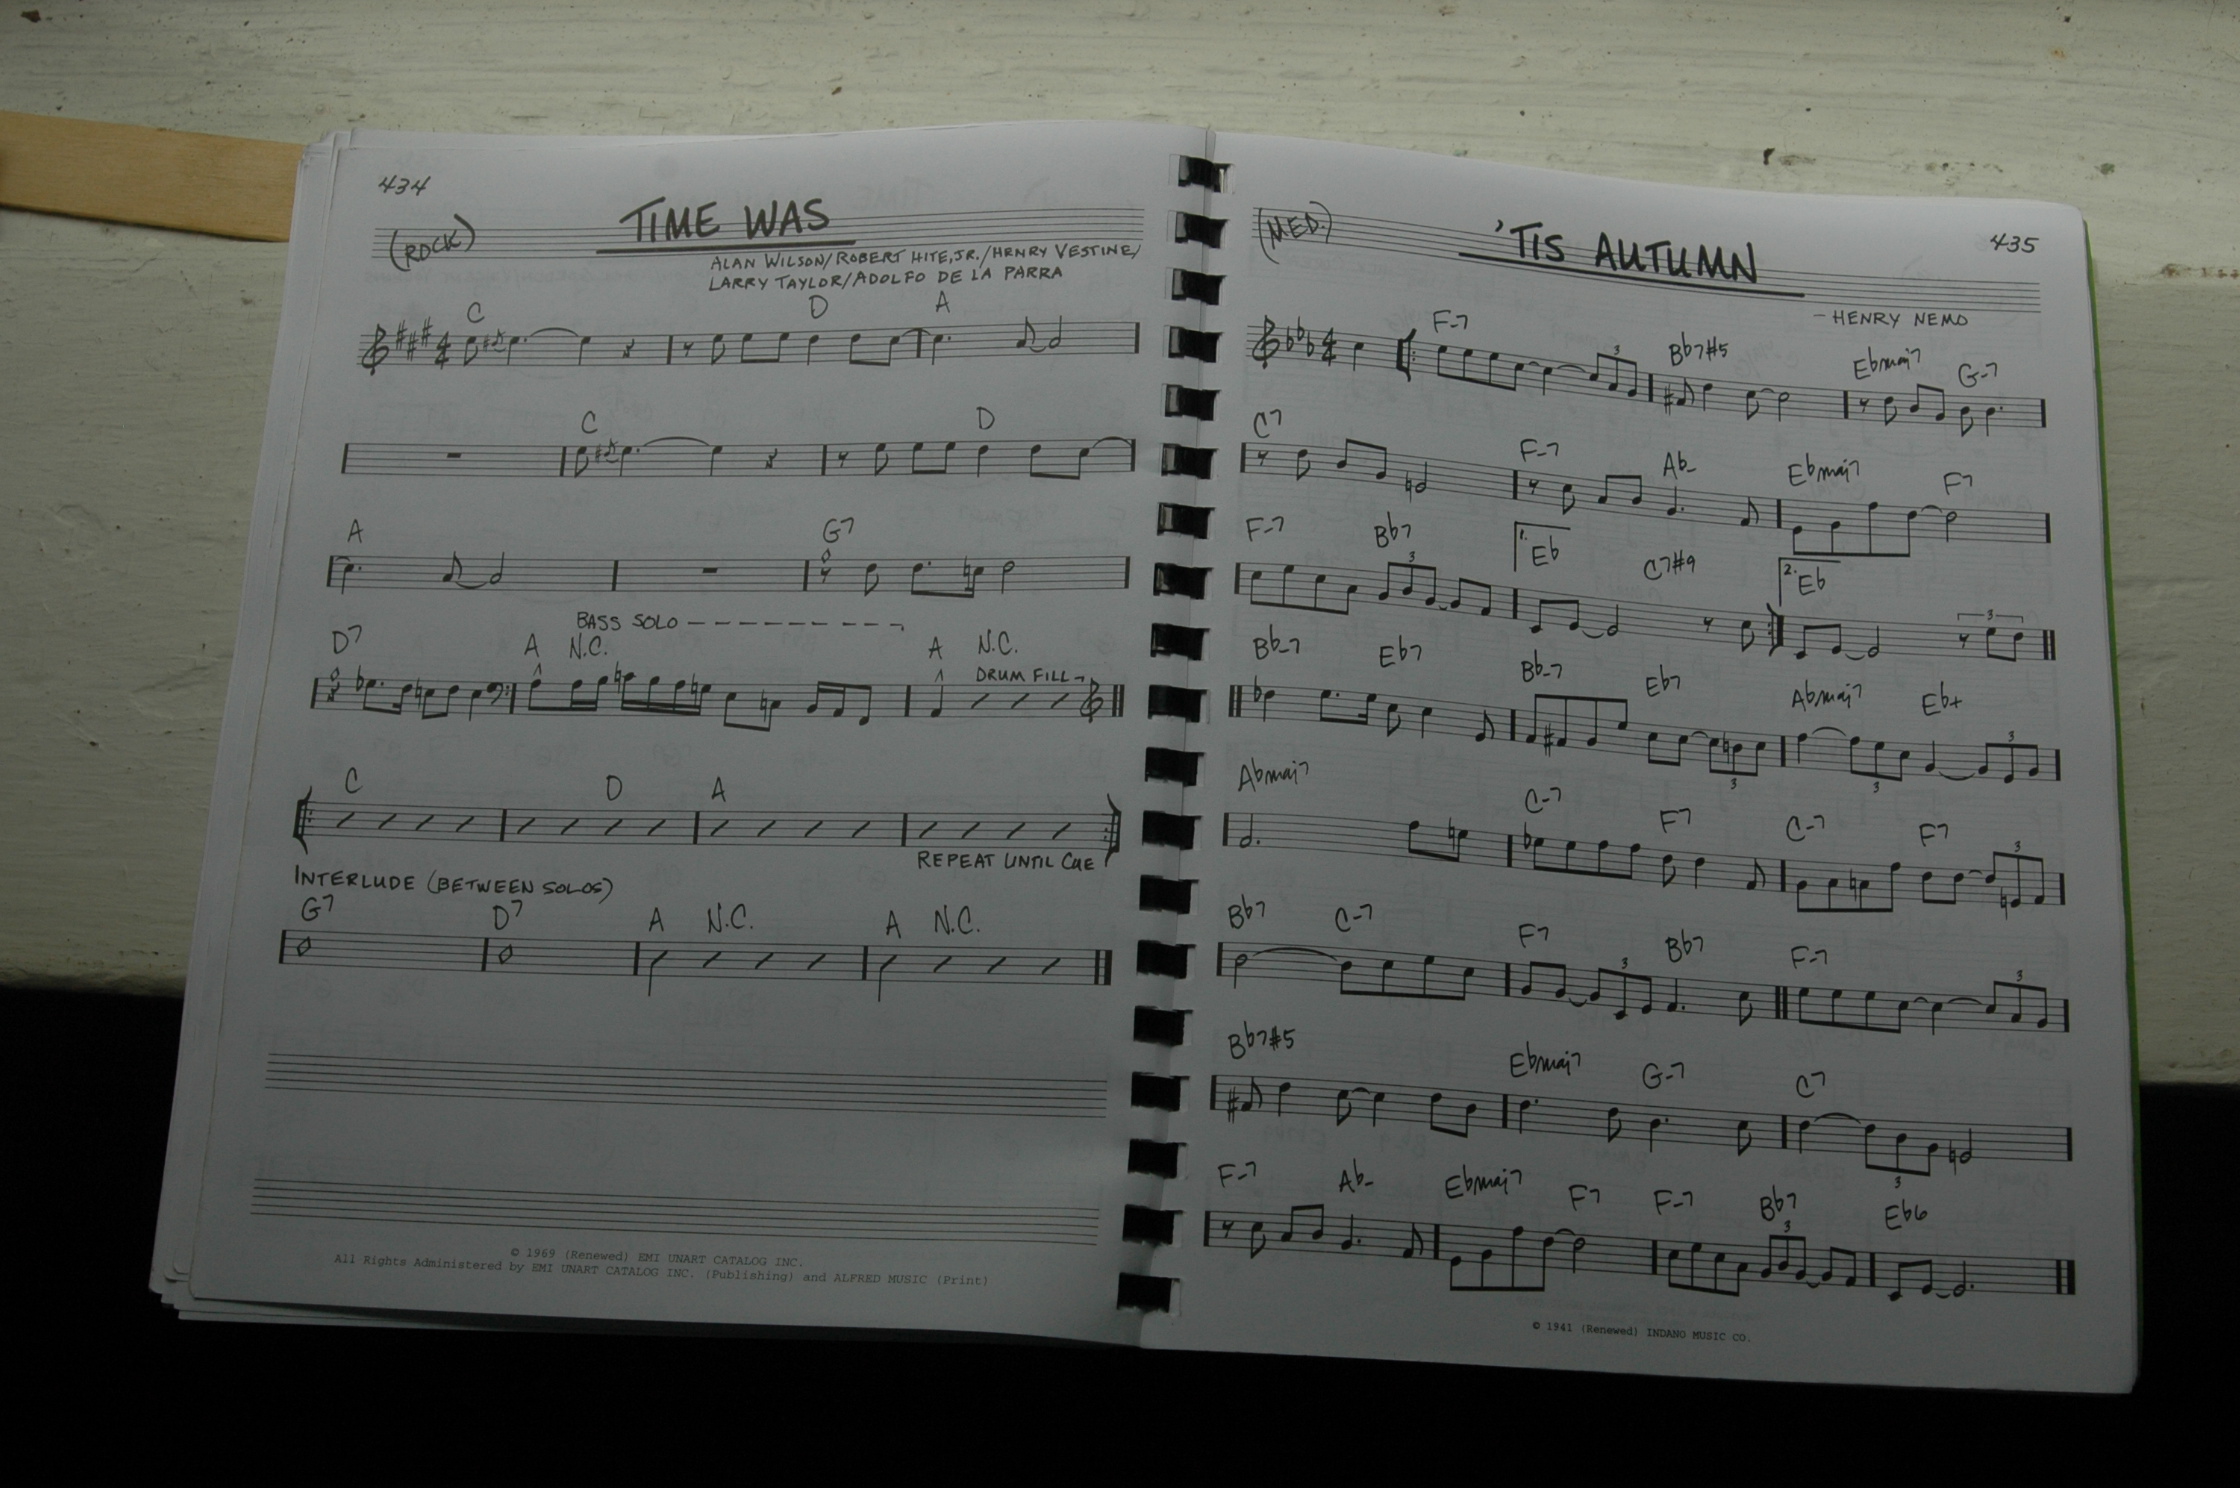 434
TIME WAS
(ROCK)
ALAN WILSON/ROBERT HITE, JR./HRNRY VESTINE/
LARRY TAYLOR/ADOLFO DE LA PARRA
C D A
C D
A G7
BASS SOLO
D7 A N.C. A N.C.
DRUM FILL
C D A
REPEAT UNTIL CUE
INTERLUDE (BETWEEN SOLOS)
G7 D7 A N.C. A N.C.
© 1969 (Renewed) EMI UNART CATALOG INC.
All Rights Administered by EMI UNART CATALOG INC. (Publishing) and ALFRED MUSIC (Print)
435
'TIS AUTUMN
(MED.)
- HENRY NEMO
F-7 Bb7#5 Ebmaj7 G-7
3
C7 F-7 Ab- Ebmaj7 F7
F-7 Bb7 1. Eb C7#9 2. Eb
3 3
Bb-7 Eb7 Bb-7 Eb7 Abmaj7 Eb+
3 3 3
Abmaj7 C-7 F7 C-7 F7
3
Bb7 C-7 F7 Bb7 F-7
3 3
Bb7#5 Ebmaj7 G-7 C7
3
F-7 Ab- Ebmaj7 F7 F-7 Bb7 Eb6
3
© 1941 (Renewed) INDANO MUSIC CO.